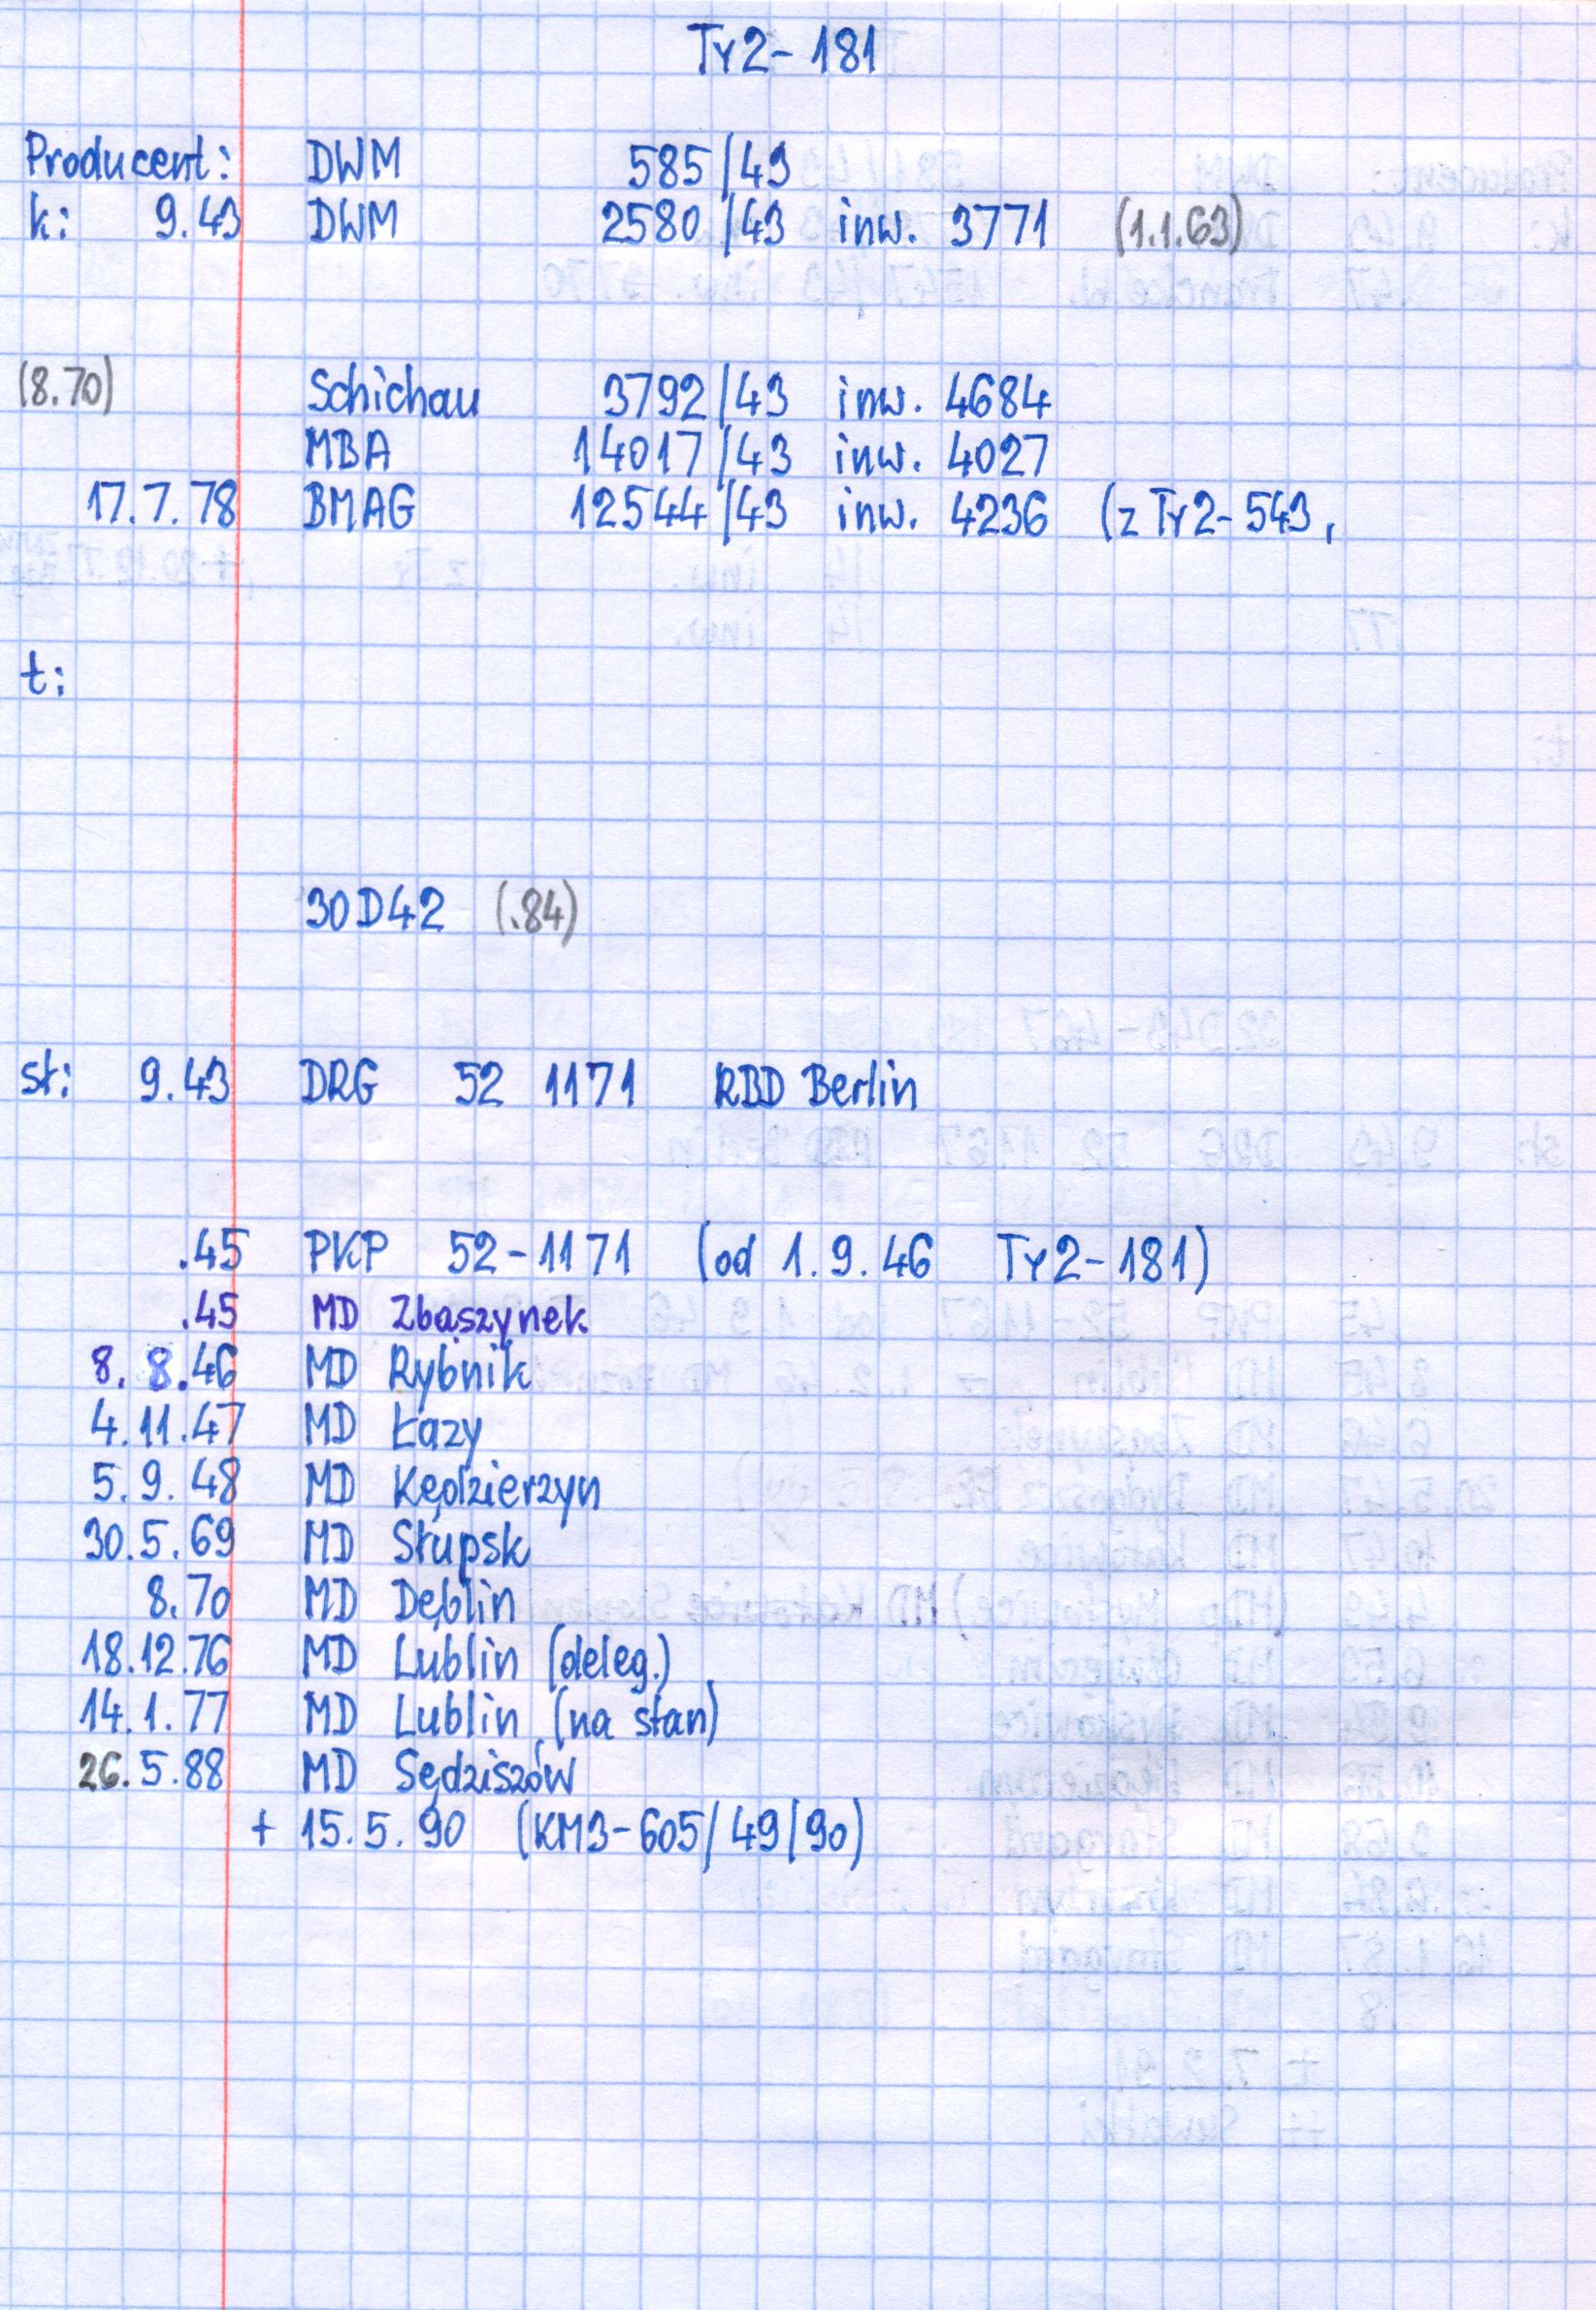 Ty2-181
Producent: DWM 585/43
k: 9.43 DWM 2580/43 inw. 3771 (1.1.63)
(8.70) Schichau 3792/43 inw. 4684
MBA 14017/43 inw. 4027
17.7.78 BMAG 12544/43 inw. 4236 (z Ty2-543,
t:
30D42 (.84)
st: 9.43 DRG 52 1171 RBD Berlin
.45 PKP 52-1171 (od 1.9.46 Ty2-181)
.45 MD Zbąszynek
8.8.46 MD Rybnik
4.11.47 MD Łazy
5.9.48 MD Kędzierzyn
30.5.69 MD Słupsk
8.70 MD Dęblin
18.12.76 MD Lublin (deleg.)
14.1.77 MD Lublin (na stan)
26.5.88 MD Sędziszów
+ 15.5.90 (KM3-605/49/90)